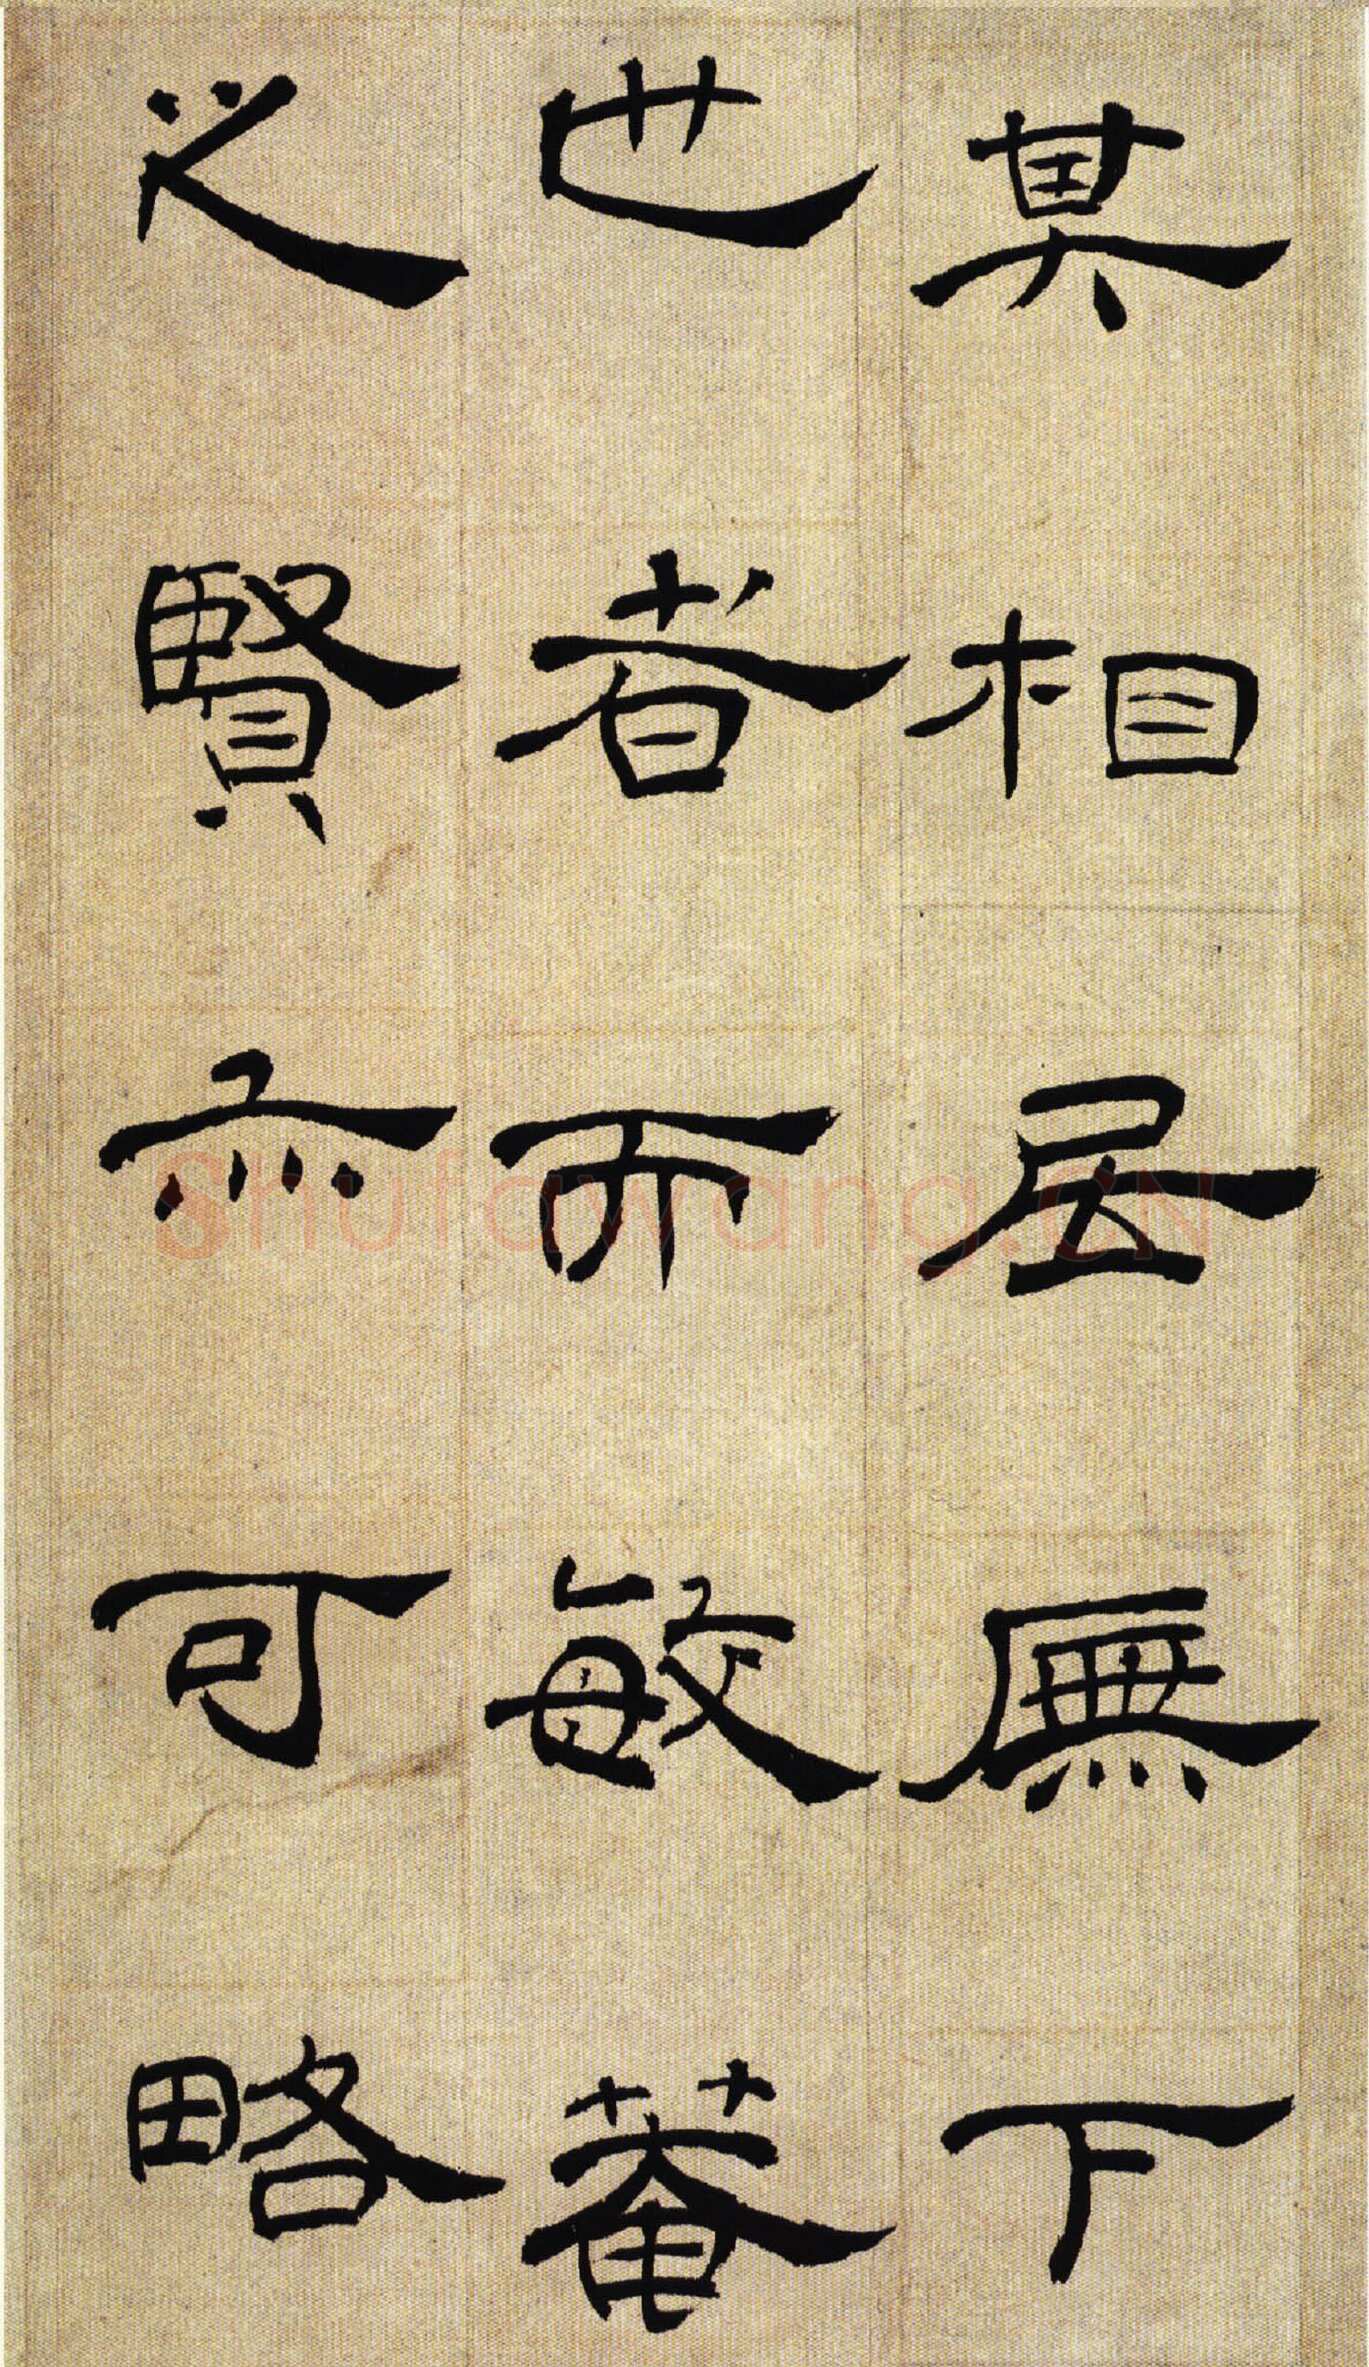 其相居廡下
也者而敏菴
之賢亦可略
Shufawang.CN